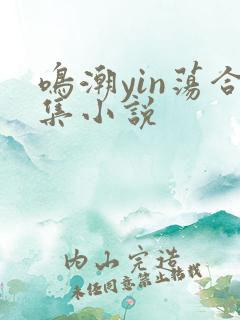 鸣潮yin荡合
集小说
内山完造
未经同意禁止转载